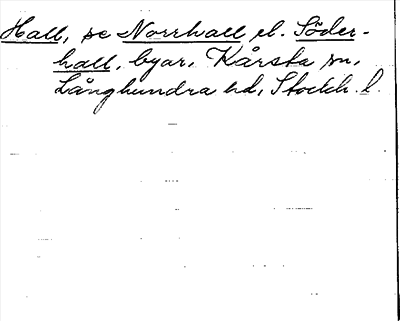 Hall, se Norrhall, el. Söder-
hall, byar, Kårsta sn,
Långhundra hd, Stockh. l.